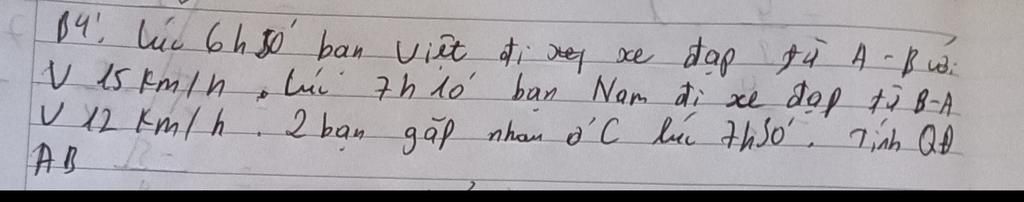 B4: lúc 6h50' bạn Việt đi xe đạp từ A - B với
V 15 km/h . lúc 7h10' bạn Nam đi xe đạp từ B-A
V 12 km/h . 2 bạn gặp nhau ở C lúc 7h30'. Tính QĐ
AB